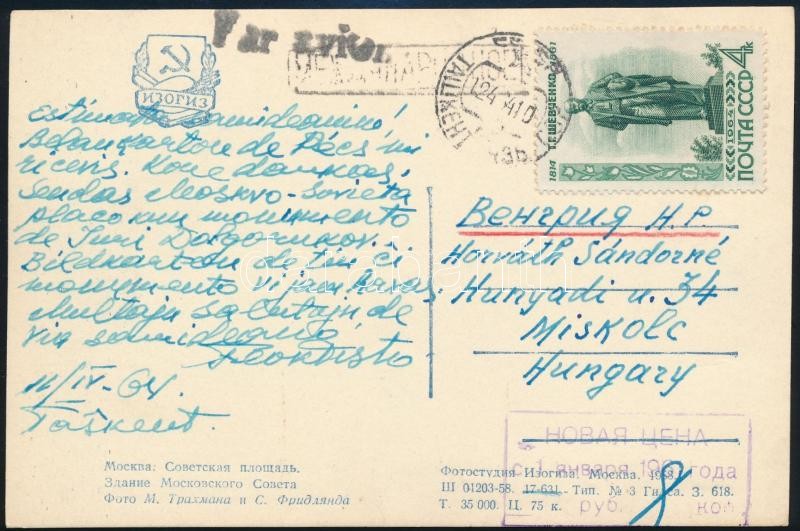 Par avion
МЕЖДУНАРОДНОЕ
ИЗОГИЗ
ТАШКЕНТ
Т.Г.ШЕВЧЕНКО 1861
1814
1964
ПОЧТА СССР 4к
Estimata samideanino!
Belan karton de Pécs mi
ricevis. Kore dankas.
Sendas Moskvo-Sovieta
placo kun monumento
de Juri Dolgorukov.
Bildkarton de tiu ĉi
monumento vi jam havas.
Multajn salutojn de
via samideano
Feoktisto
/IV-64.
Taŝkent.
Венгрия Н.Р.
Horváth Sándorné
Hunyadi u. 34
Miskolc
Hungary
НОВАЯ ЦЕНА
с 1 января 196 года
руб. коп
8
Москва: Советская площадь.
Здание Московского Совета
Фото М. Трахмана и С. Фридлянда
Фотостудия Изогиза. Москва. 1958.
Ш 01203-58. 17-631 - Тип. № 3 Гиза. З. 618.
Т. 35 000. Ц. 75 к.